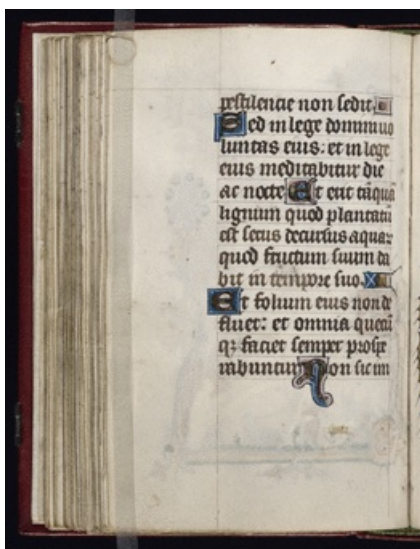 pestilencie non sedit.
Sed in lege domini uo
luntas eius: et in lege
eius meditabitur die
ac nocte Et erit tāquā
lignum quod plantatū
est secus decursus aquaꝝ
quod fructum suum da
bit in tempore suo.
Et folium eius non de
fluet: et omnia quecū
qꝫ faciet semper prospe
rabuntur Non sic im